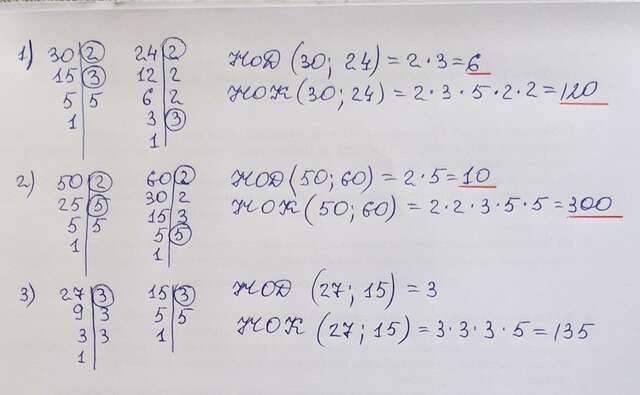 1) 30 2 24 2 НОД (30; 24) = 2 · 3 = 6
15 3 12 2 НОК (30; 24) = 2 · 3 · 5 · 2 · 2 = 120
5 5 6 2
1 3 3
1
2) 50 2 60 2 НОД (50; 60) = 2 · 5 = 10
25 5 30 2 НОК (50; 60) = 2 · 2 · 3 · 5 · 5 = 300
5 5 15 3
1 5 5
1
3) 27 3 15 3 НОД (27; 15) = 3
9 3 5 5 НОК (27; 15) = 3 · 3 · 3 · 5 = 135
3 3 1
1